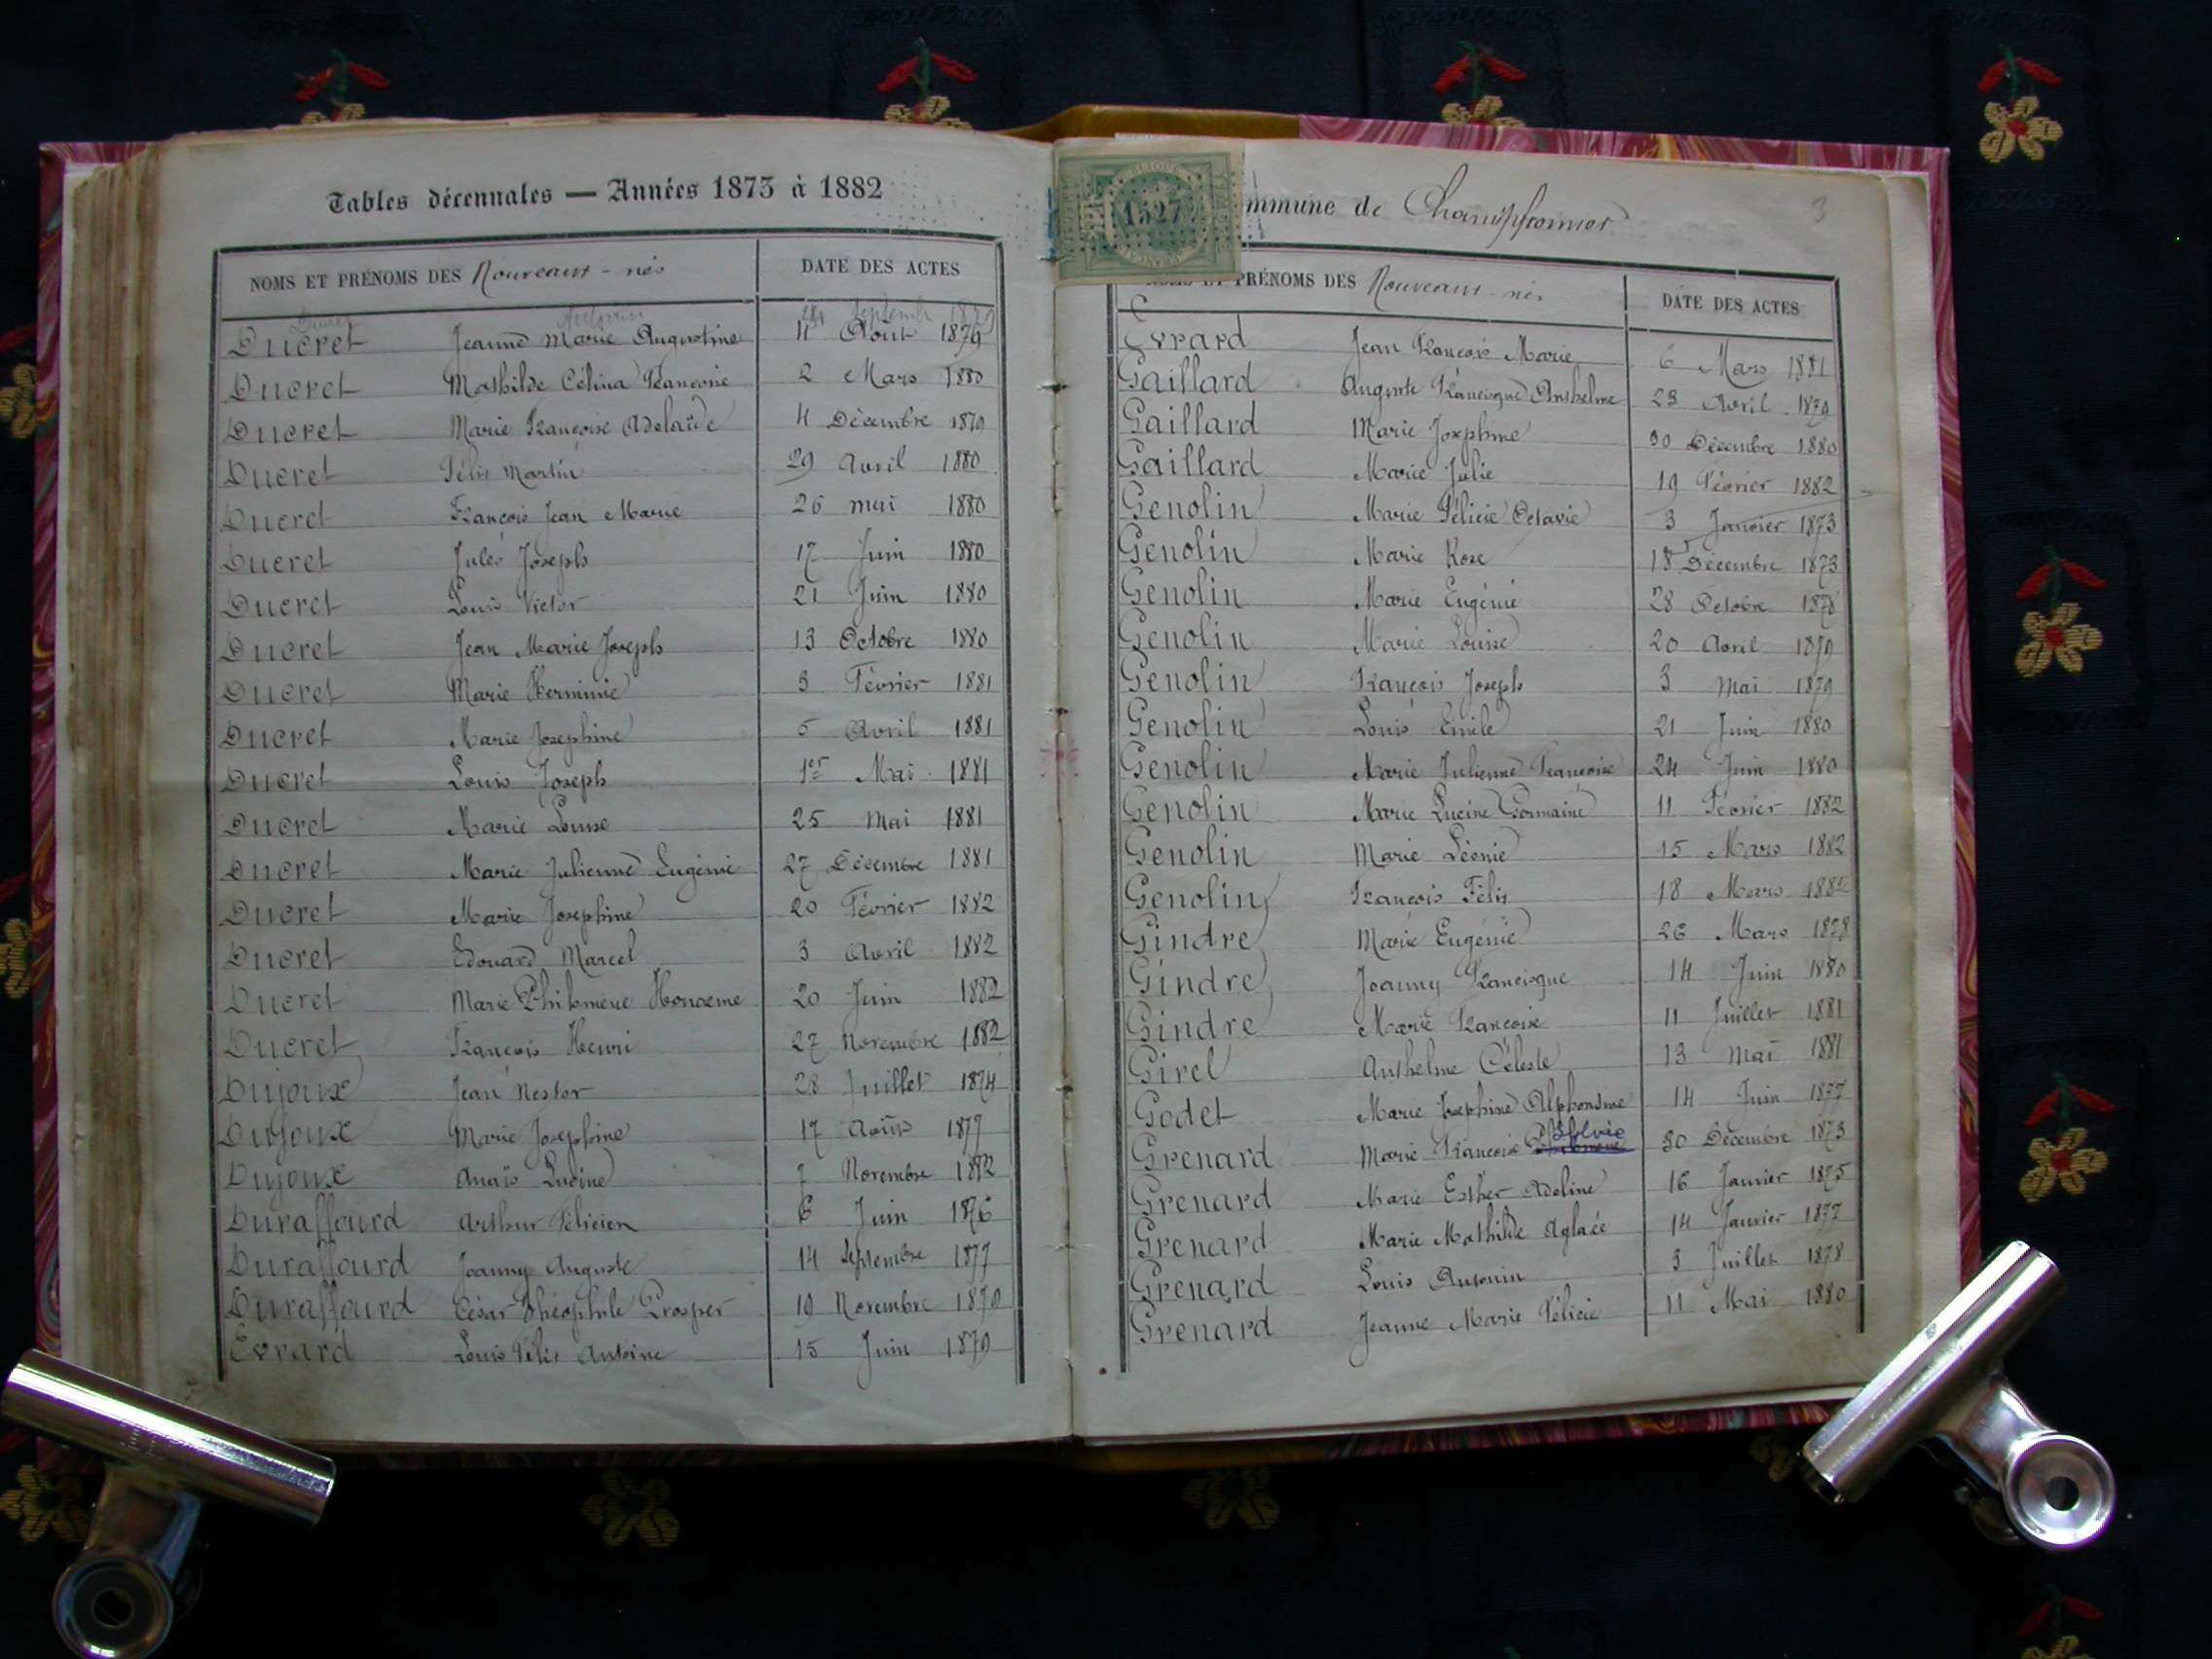 Tables décennales — Années 1873 à 1882
NOMS ET PRÉNOMS DES Nouveaux-nés DATE DES ACTES
Septembre
Ducret Jeanne Marie Augustine 11 Août 1879
Ducret Mathilde Célina Françoise 2 Mars 1880
Ducret Marie Françoise Adelaïde 4 Décembre 1879
Ducret Félix Martin 29 Avril 1880
Ducret François Jean Marie 26 mai 1880
Ducret Jules Joseph 17 Juin 1880
Ducret Louis Victor 21 Juin 1880
Ducret Jean Marie Joseph 13 Octobre 1880
Ducret Marie Herminie 3 Février 1881
Ducret Marie Josephine 5 Avril 1881
Ducret Louis Joseph 1er Mai 1881
Ducret Marie Louise 25 Mai 1881
Ducret Marie Julienne Eugénie 27 Décembre 1881
Ducret Marie Josephine 20 Février 1882
Ducret Edouard Marcel 3 Avril 1882
Ducret Marie Philomène 20 Juin 1882
Ducret François Henri 27 Novembre 1882
Dujoux Jean Nestor 28 Juillet 1874
Dujoux Marie Josephine 17 Août 1877
Dujoux Anaïs Lucine 7 Novembre
Duraffourd Arthur Félicien 6 Juin 1876
Duraffourd Joanny Auguste 14 Septembre 1877
Duraffourd César Théophile Prosper 19 Novembre 1879
Evrard Louis Félix Antoine 15 Juin 1879
1527
mmune de Champfromier 3
PRÉNOMS DES Nouveaux-nés DATE DES ACTES
Evrard Jean François Marie 6 Mars 1881
Gaillard Auguste Francisque Anthelme 23 Avril 1879
Gaillard Marie Josephine 30 Décembre 1880
Gaillard Marie Julie 19 Février 1882
Genolin Marie Félicie Octavie 3 Janvier 1873
Genolin Marie Rose 18 Décembre 1873
Genolin Marie Eugénie 28 Octobre 1878
Genolin Marie Louise 20 Avril 1879
Genolin François Joseph 3 Mai 1879
Genolin Louis Emile 21 Juin 1880
Genolin Marie Julienne Françoise 24 Juin 1880
Genolin Marie Lucine Germaine 11 Février 1882
Genolin Marie Léonie 15 Mars 1882
Genolin François Félix 18 Mars 1882
Gindre Marie Eugénie 26 Mars 1878
Gindre Joanny Francisque 14 Juin 1880
Gindre Marie Françoise 11 Juillet 1881
Girel Anthelme Céleste 13 Mai 1881
Godet Marie Josephine Alphonsine 14 Juin 1877
Grenard Marie François 30 Décembre 1873
Grenard Marie Esther Adeline 16 Janvier 1875
Grenard Marie Mathilde Aglaée 14 Janvier 1877
Grenard Louis Antonin 3 Juillet 1878
Grenard Jeanne Marie Félicie 11 Mai 1880